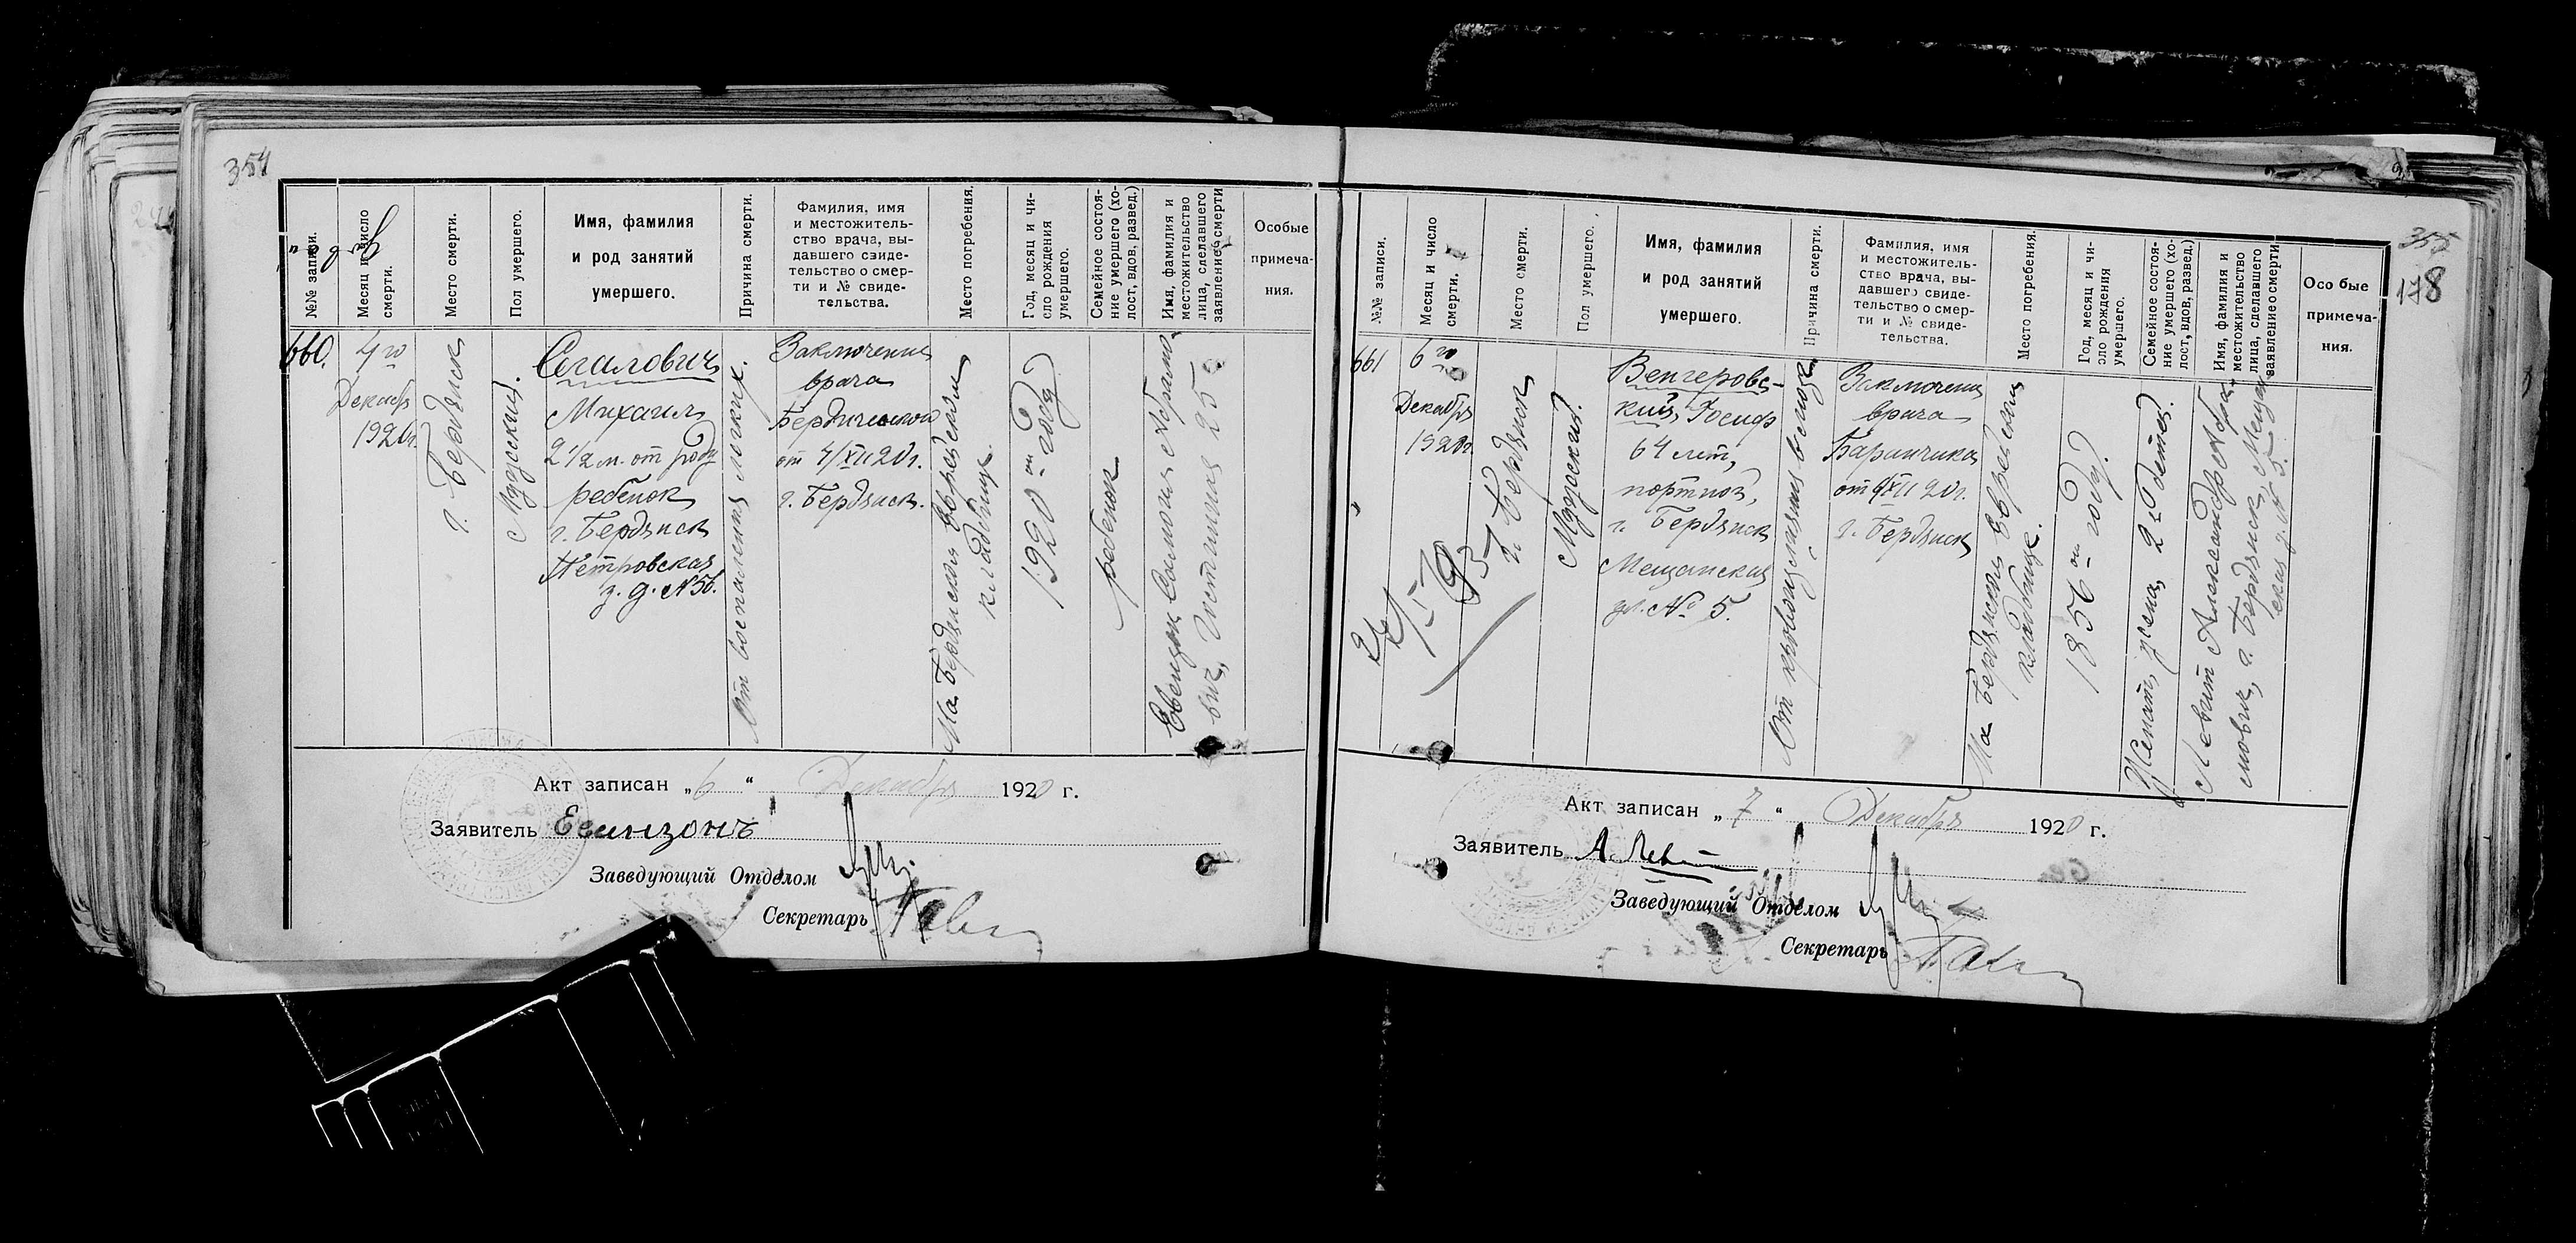 354
№№ записи.
Месяц и число
смерти.
Место смерти.
Пол умершего.
Имя, фамилия
и род занятий
умершего.
Причина смерти.
Фамилия, имя
и местожитель-
ство врача, вы-
давшего свиде-
тельство о смер-
ти и № свиде-
тельства.
Место погребения.
Год, месяц и чи-
сло рождения
умершего.
Семейное состоя-
ние умершего (хо-
лост, вдов, развед.)
Имя, фамилия и
местожительство
лица, сделавшего
заявление о смерти
Особые
примеча-
ния.
660.
4го
Декабр
1920г.
г. Бердянск
Мужеский.
Сегалович
Михаил
2 1/2 м. от роду
ребенок
г. Бердянск
Петровская
у. д. №56.
От воспаления легких.
Заключение
врача
Бердичевской
от 4/XII 20г.
г. Бердянск.
На Бердянском Еврейском
кладбище.
1920 - году
ребенок
Соломон Абрамо-
вич, 25
Акт записан „6“ Декабря 1920 г.
Заявитель
Заведующий Отделом
Секретарь
355
178
№№ записи.
Месяц и число
смерти.
Место смерти.
Пол умершего.
Имя, фамилия
и род занятий
умершего.
Причина смерти.
Фамилия, имя
и местожитель-
ство врача, вы-
давшего свиде-
тельство о смер-
ти и № свиде-
тельства.
Место погребения.
Год, месяц и чи-
сло рождения
умершего.
Семейное состоя-
ние умершего (хо-
лост, вдов, развед.)
Имя, фамилия и
местожительство
лица, сделавшего
заявление о смерти
Особые
примеча-
ния.
661
6го
Декабря
1920г.
г. Бердянск
Мужеский.
Венгеровс-
кий, Иосиф
64 лет,
портной,
г. Бердянск
Мещанская
ул. № 5.
От кровоизлияния в мозг.
Заключение
врача
Баранчика
от 6/XII 20г.
г. Бердянск
На Бердянском Еврейском
кладбище.
1856 - году.
Женат, жена, 2 детей.
Левит Александр Абра-
мович, г. Бердянск, Мещан-
ская у. № 5.
Акт записан „7“ Декабря 1920 г.
Заявитель А. Левит
Заведующий Отделом
Секретарь